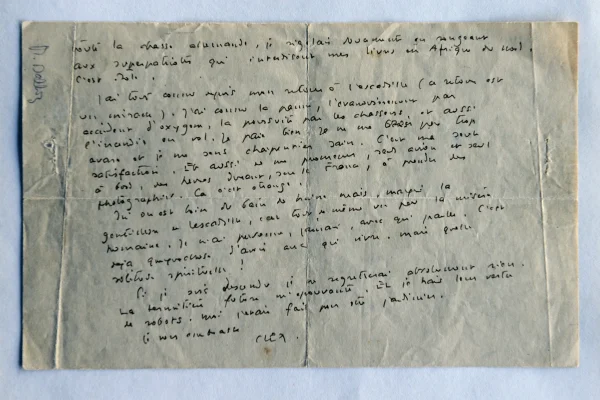 P. Dalloz
évité la chasse allemande, je rigolais doucement en songeant
aux superpatriotes qui interdisent mes livres en Afrique du nord.
C'est drôle.
J'ai tout connu depuis mon retour à l'escadrille (ce retour est
un miracle). J'ai connu la panne, l'évanouissement par
accident d'oxygene, la poursuite par les chasseurs, et aussi
l'incendie en vol. Je paie bien. Je ne me crois pas trop
avare et je me sens charpentier sain. C'est ma seule
satisfaction. Et aussi de me promener, seul avion et seul
à bord, des heures durant, sur la France, à prendre des
photographies. Ca c'est étrange.
Ici on est loin du bain de haine mais, malgré la
gentillesse de l'escadrille, c'est tout de même un peu la misère
humaine. Je n'ai personne, jamais, avec qui parler. C'est
déjà quelquechose d'avoir avec qui vivre. mais quelle
solitude spirituelle !
Si je suis descendu je ne regretterai absolument rien.
La termitière future m'épouvante. Et je hais leur vertu
de robots. moi j'étais fait pour être jardinier.
Je vous embrasse